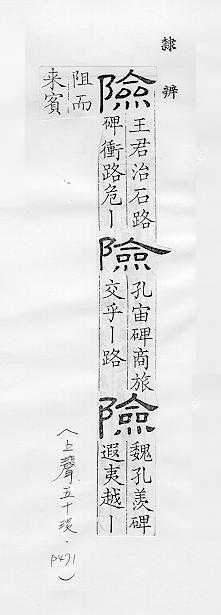 隸辨
險
王君治石路
碑衝路危丨
險
孔宙碑商旅
交乎丨路
險
魏孔羨碑
遐夷越丨
阻而
来賓
(上聲五十琰.p471)